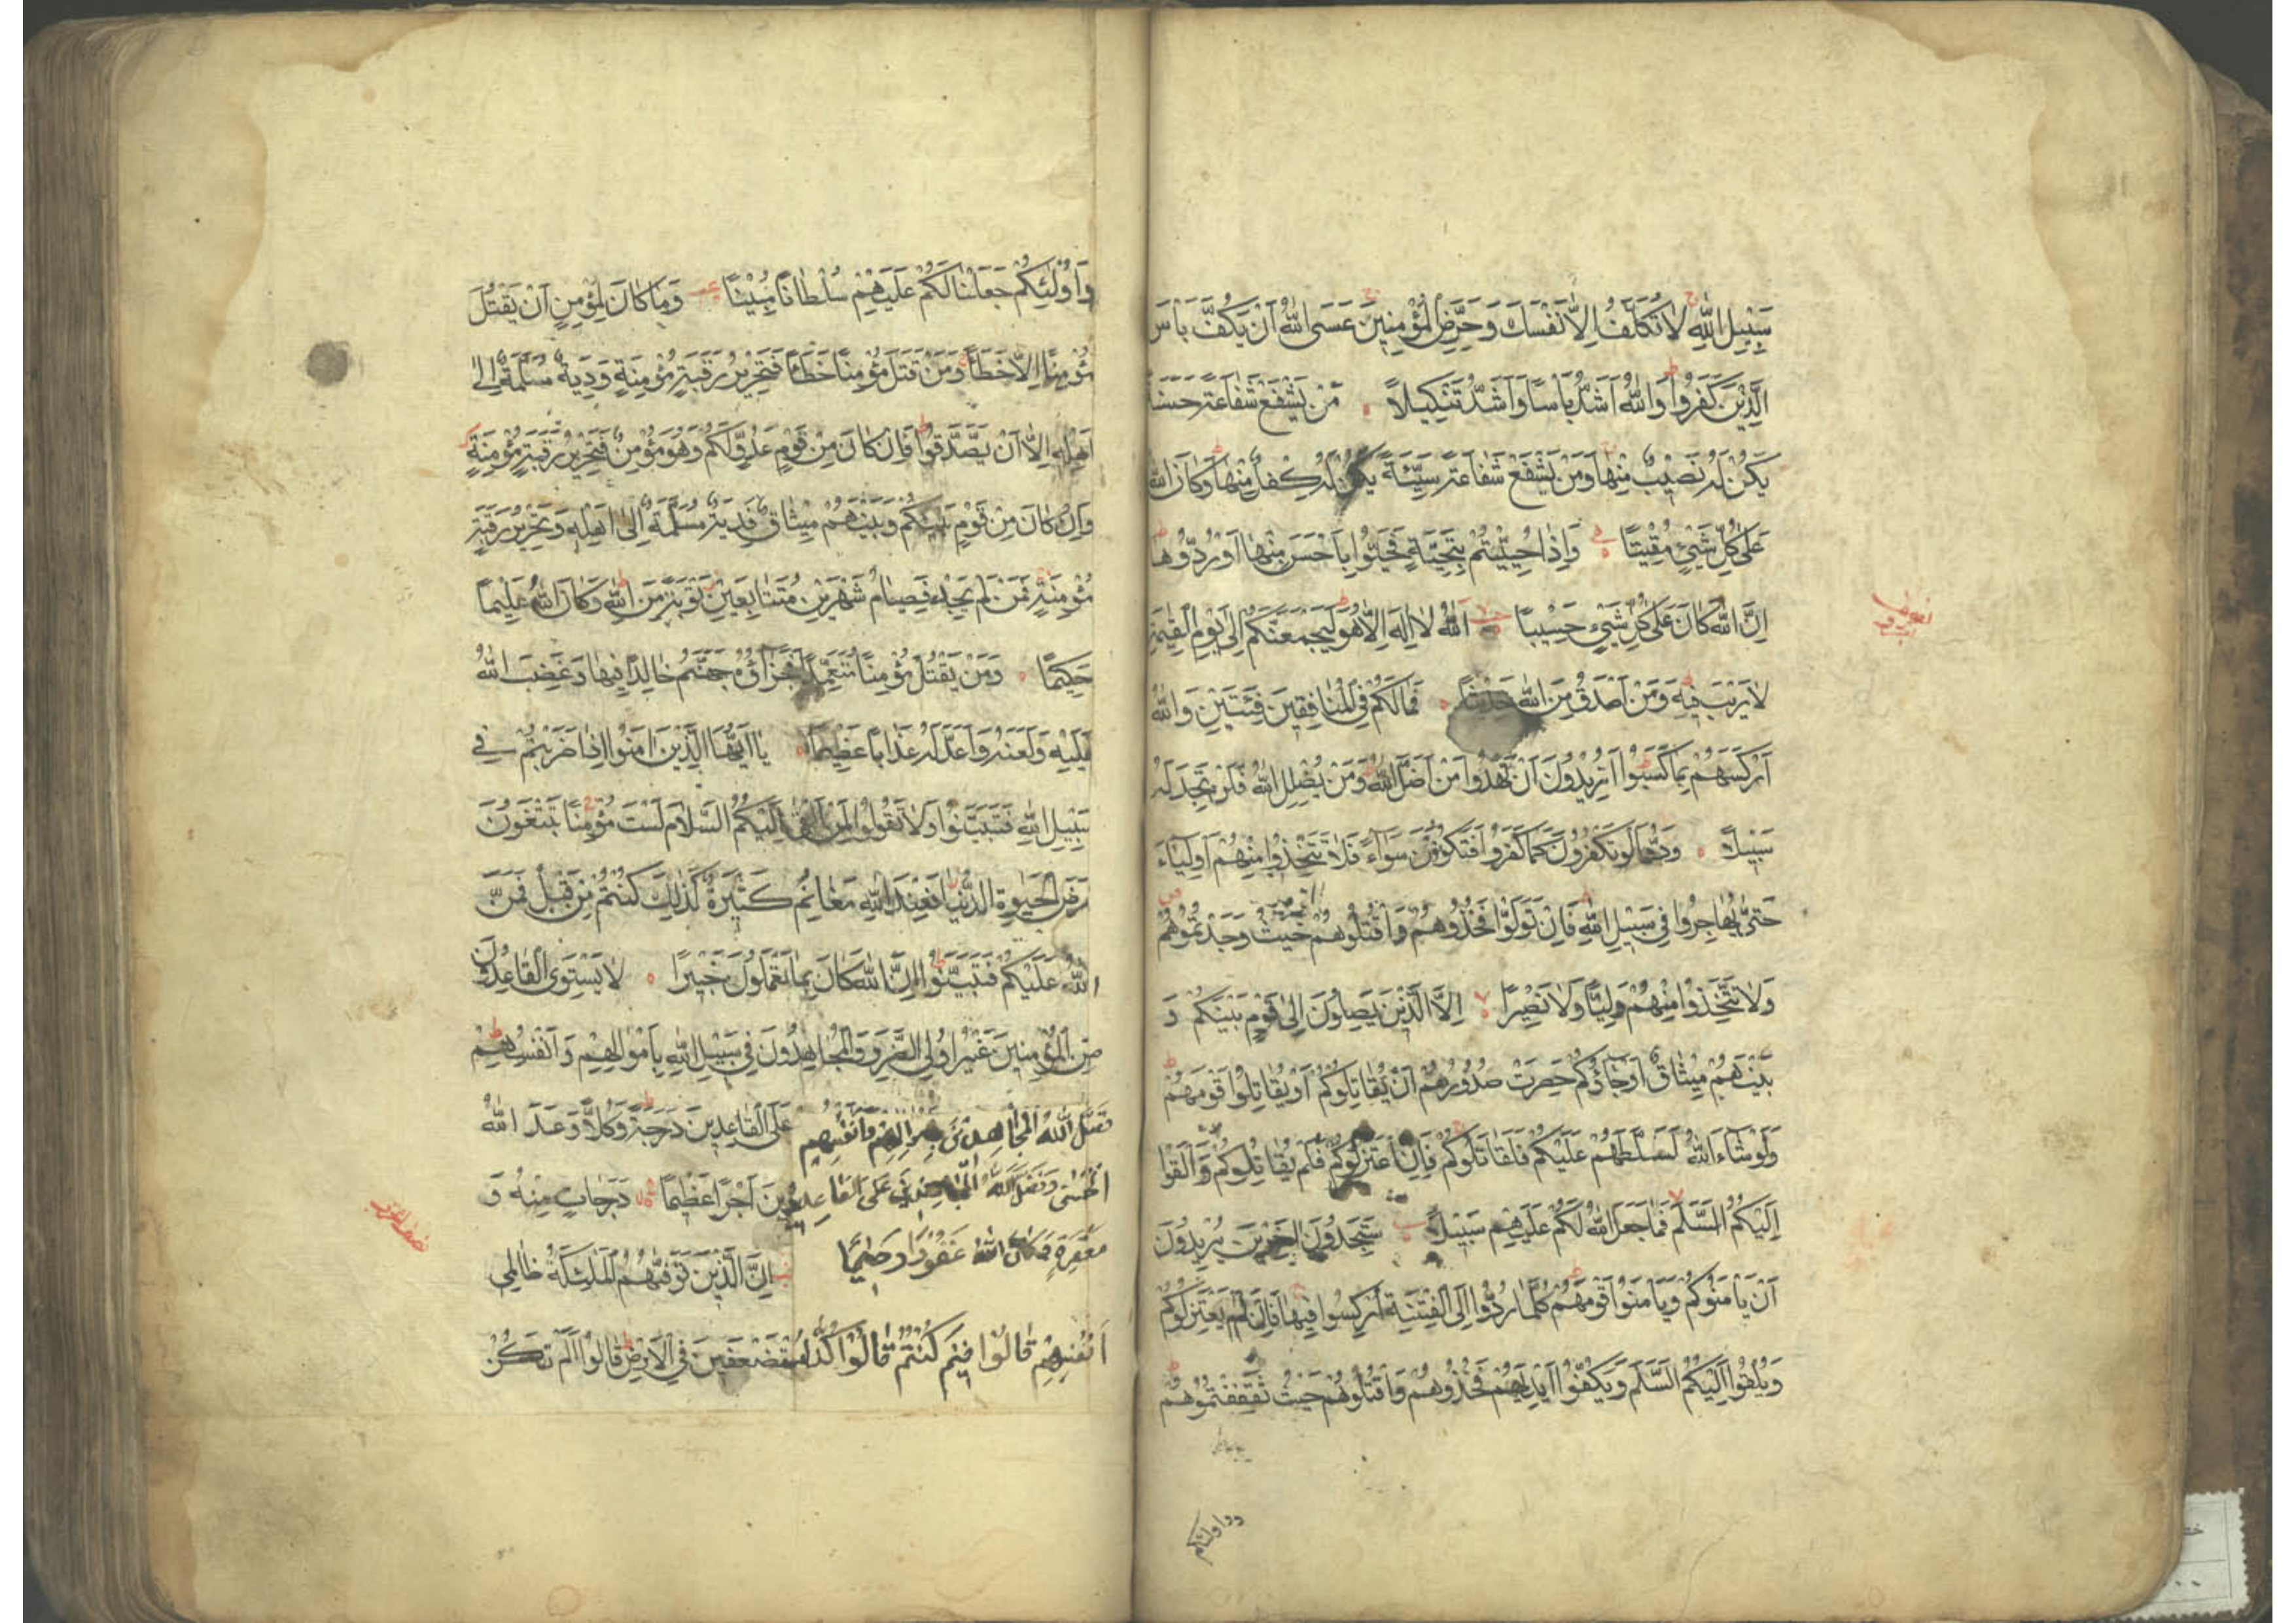 سَبِيلِ اللّٰهِ لَا تُكَلَّفُ اِلَّا نَفْسَكَ وَحَرِّضِ الْمُؤْمِنِينَ عَسَى اللّٰهُ اَنْ يَكُفَّ بَأْسَ
الَّذِينَ كَفَرُوا وَاللّٰهُ اَشَدُّ بَأْسًا وَاَشَدُّ تَنْكِيلًا مَنْ يَشْفَعْ شَفَاعَةً حَسَنَةً
يَكُنْ لَهُ نَصِيبٌ مِنْهَا وَمَنْ يَشْفَعْ شَفَاعَةً سَيِّئَةً يَكُنْ لَهُ كِفْلٌ مِنْهَا وَكَانَ اللّٰهُ
عَلَى كُلِّ شَيْءٍ مُقِيتًا وَاِذَا حُيِّيتُمْ بِتَحِيَّةٍ فَحَيُّوا بِاَحْسَنَ مِنْهَا اَوْ رُدُّوهَا
اِنَّ اللّٰهَ كَانَ عَلَى كُلِّ شَيْءٍ حَسِيبًا اَللّٰهُ لَا اِلٰهَ اِلَّا هُوَ لَيَجْمَعَنَّكُمْ اِلَى يَوْمِ الْقِيٰمَةِ
لَا رَيْبَ فِيهِ وَمَنْ اَصْدَقُ مِنَ اللّٰهِ حَدِيثًا فَمَا لَكُمْ فِي الْمُنَافِقِينَ فِئَتَيْنِ وَاللّٰهُ
اَرْكَسَهُمْ بِمَا كَسَبُوا اَتُرِيدُونَ اَنْ تَهْدُوا مَنْ اَضَلَّ اللّٰهُ وَمَنْ يُضْلِلِ اللّٰهُ فَلَنْ تَجِدَ لَهُ
سَبِيلًا وَدُّوا لَوْ تَكْفُرُونَ كَمَا كَفَرُوا فَتَكُونُونَ سَوَاءً فَلَا تَتَّخِذُوا مِنْهُمْ اَوْلِيَاءَ
حَتّٰى يُهَاجِرُوا فِي سَبِيلِ اللّٰهِ فَاِنْ تَوَلَّوْا فَخُذُوهُمْ وَاقْتُلُوهُمْ حَيْثُ وَجَدْتُمُوهُمْ
وَلَا تَتَّخِذُوا مِنْهُمْ وَلِيًّا وَلَا نَصِيرًا اِلَّا الَّذِينَ يَصِلُونَ اِلَى قَوْمٍ بَيْنَكُمْ وَ
بَيْنَهُمْ مِيثَاقٌ اَوْ جَاؤُكُمْ حَصِرَتْ صُدُورُهُمْ اَنْ يُقَاتِلُوكُمْ اَوْ يُقَاتِلُوا قَوْمَهُمْ
وَلَوْ شَاءَ اللّٰهُ لَسَلَّطَهُمْ عَلَيْكُمْ فَلَقَاتَلُوكُمْ فَاِنِ اعْتَزَلُوكُمْ فَلَمْ يُقَاتِلُوكُمْ وَاَلْقَوْا
اِلَيْكُمُ السَّلَمَ فَمَا جَعَلَ اللّٰهُ لَكُمْ عَلَيْهِمْ سَبِيلًا سَتَجِدُونَ اٰخَرِينَ يُرِيدُونَ
اَنْ يَأْمَنُوكُمْ وَيَأْمَنُوا قَوْمَهُمْ كُلَّمَا رُدُّوا اِلَى الْفِتْنَةِ اُرْكِسُوا فِيهَا فَاِنْ لَمْ يَعْتَزِلُوكُمْ
وَيُلْقُوا اِلَيْكُمُ السَّلَمَ وَيَكُفُّوا اَيْدِيَهُمْ فَخُذُوهُمْ وَاقْتُلُوهُمْ حَيْثُ ثَقِفْتُمُوهُمْ
وَاُولٰئِكُمْ جَعَلْنَا لَكُمْ عَلَيْهِمْ سُلْطَانًا مُبِينًا وَمَا كَانَ لِمُؤْمِنٍ اَنْ يَقْتُلَ
مُؤْمِنًا اِلَّا خَطَأً وَمَنْ قَتَلَ مُؤْمِنًا خَطَأً فَتَحْرِيرُ رَقَبَةٍ مُؤْمِنَةٍ وَدِيَةٌ مُسَلَّمَةٌ اِلٰى
اَهْلِهِ اِلَّا اَنْ يَصَّدَّقُوا فَاِنْ كَانَ مِنْ قَوْمٍ عَدُوٍّ لَكُمْ وَهُوَ مُؤْمِنٌ فَتَحْرِيرُ رَقَبَةٍ مُؤْمِنَةٍ
وَاِنْ كَانَ مِنْ قَوْمٍ بَيْنَكُمْ وَبَيْنَهُمْ مِيثَاقٌ فَدِيَةٌ مُسَلَّمَةٌ اِلٰى اَهْلِهِ وَتَحْرِيرُ رَقَبَةٍ
مُؤْمِنَةٍ فَمَنْ لَمْ يَجِدْ فَصِيَامُ شَهْرَيْنِ مُتَتَابِعَيْنِ تَوْبَةً مِنَ اللّٰهِ وَكَانَ اللّٰهُ عَلِيمًا
حَكِيمًا وَمَنْ يَقْتُلْ مُؤْمِنًا مُتَعَمِّدًا فَجَزَاؤُهُ جَهَنَّمُ خَالِدًا فِيهَا وَغَضِبَ اللّٰهُ
عَلَيْهِ وَلَعَنَهُ وَاَعَدَّ لَهُ عَذَابًا عَظِيمًا يَا اَيُّهَا الَّذِينَ اٰمَنُوا اِذَا ضَرَبْتُمْ فِي
سَبِيلِ اللّٰهِ فَتَبَيَّنُوا وَلَا تَقُولُوا لِمَنْ اَلْقٰى اِلَيْكُمُ السَّلَامَ لَسْتَ مُؤْمِنًا تَبْتَغُونَ
عَرَضَ الْحَيٰوةِ الدُّنْيَا فَعِنْدَ اللّٰهِ مَغَانِمُ كَثِيرَةٌ كَذٰلِكَ كُنْتُمْ مِنْ قَبْلُ فَمَنَّ
اللّٰهُ عَلَيْكُمْ فَتَبَيَّنُوا اِنَّ اللّٰهَ كَانَ بِمَا تَعْمَلُونَ خَبِيرًا لَا يَسْتَوِي الْقَاعِدُونَ
مِنَ الْمُؤْمِنِينَ غَيْرُ اُولِي الضَّرَرِ وَالْمُجَاهِدُونَ فِي سَبِيلِ اللّٰهِ بِاَمْوَالِهِمْ وَاَنْفُسِهِمْ
فَضَّلَ اللّٰهُ الْمُجَاهِدِينَ بِاَمْوَالِهِمْ وَاَنْفُسِهِمْ عَلَى الْقَاعِدِينَ دَرَجَةً وَكُلًّا وَعَدَ اللّٰهُ
الْحُسْنٰى وَفَضَّلَ اللّٰهُ الْمُجَاهِدِينَ عَلَى الْقَاعِدِينَ اَجْرًا عَظِيمًا دَرَجَاتٍ مِنْهُ وَ
مَغْفِرَةً وَكَانَ اللّٰهُ غَفُورًا رَحِيمًا اِنَّ الَّذِينَ تَوَفّٰيهُمُ الْمَلٰئِكَةُ ظَالِمِي
اَنْفُسِهِمْ قَالُوا فِيمَ كُنْتُمْ قَالُوا كُنَّا مُسْتَضْعَفِينَ فِي الْاَرْضِ قَالُوا اَلَمْ تَكُنْ